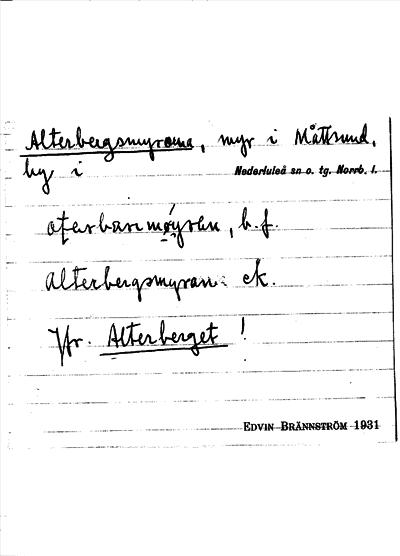 Alterbergsmyrarna, myr i Måttsund,
by i Nederluleå sn o. tg. Norrb. l.
b. f.
Alterbergsmyran: ek.
Jfr. Alterberget!
EDVIN BRÄNNSTRÖM 1931